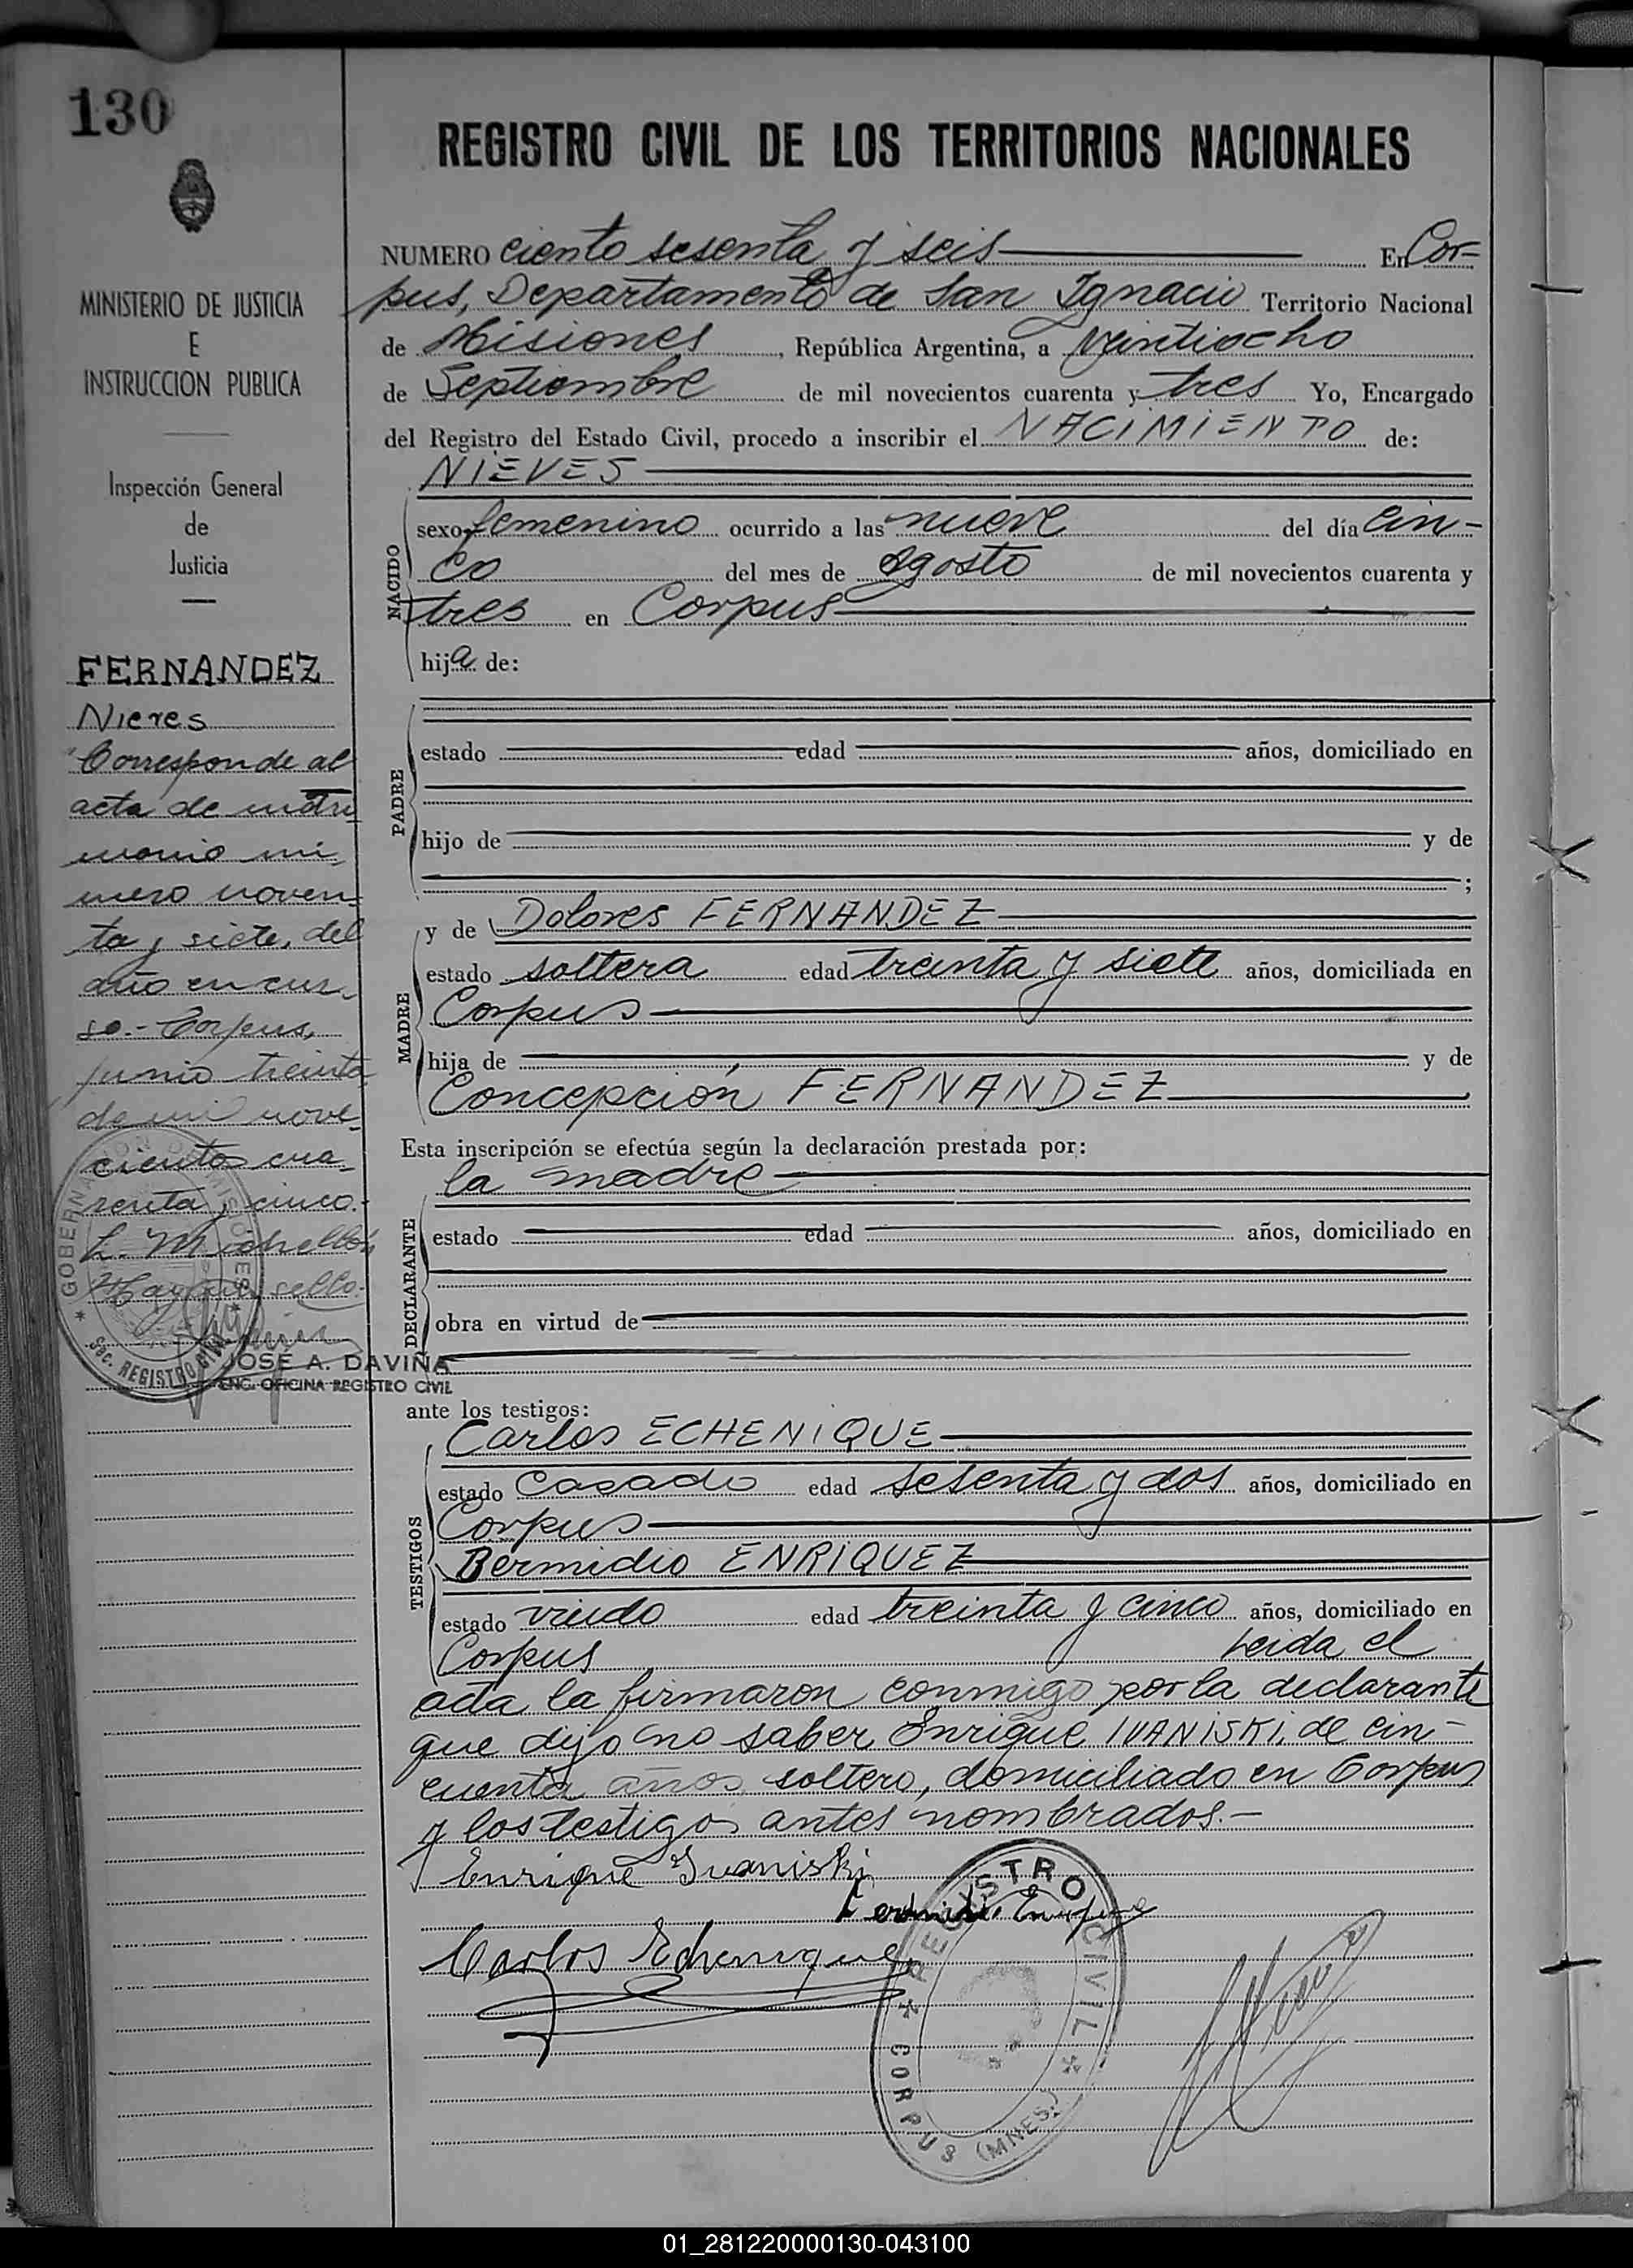 130
MINISTERIO DE JUSTICIA
E
INSTRUCCION PUBLICA
Inspección General
de
Justicia
FERNANDEZ
Nieves
Corresponde al
acta de matri
monio nú-
mero noven-
ta y siete, del
año en cur-
so.- Corpus,
junio treinta
de mil nove-
cientos cua-
renta y cinco.-
L. Michellón
Hay un sello.-
GOBERNACION DE MISIONES
Sec. REGISTRO CIVIL
JOSE A. DAVIÑA
ENC. OFICINA REGISTRO CIVIL
REGISTRO CIVIL DE LOS TERRITORIOS NACIONALES
NUMERO ciento sesenta y seis En Cor-
pus, Departamento de San Ignacio Territorio Nacional
de Misiones, República Argentina, a veintiocho
de Septiembre de mil novecientos cuarenta y tres Yo, Encargado
del Registro del Estado Civil, procedo a inscribir el NACIMIENTO de:
NIEVES
NACIDO
sexo femenino ocurrido a las nueve del día cin-
co del mes de agosto de mil novecientos cuarenta y
tres en Corpus
hija de:
PADRE
estado edad años, domiciliado en
hijo de y de
;
MADRE
y de Dolores FERNANDEZ
estado soltera edad treinta y siete años, domiciliada en
Corpus
hija de y de
Concepción FERNANDEZ
Esta inscripción se efectúa según la declaración prestada por:
la madre
DECLARANTE
estado edad años, domiciliado en
obra en virtud de
ante los testigos:
TESTIGOS
Carlos ECHENIQUE
estado Casado edad sesenta y dos años, domiciliado en
Corpus
Bermidio ENRIQUEZ
estado viudo edad treinta y cinco años, domiciliado en
Corpus Leida el
acta la firmaron conmigo por la declarante
que dijo no saber Enrique IVANISKI, de cin-
cuenta años, soltero, domiciliado en Corpus
y los testigos antes nombrados.-
Enrique Ivaniski
Carlos Echenique
REGISTRO CIVIL
CORPUS (MNES.)
01_281220000130-043100